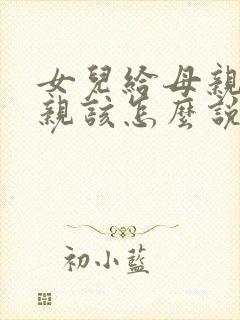 女兒給母親
親該怎麼說
初小藍